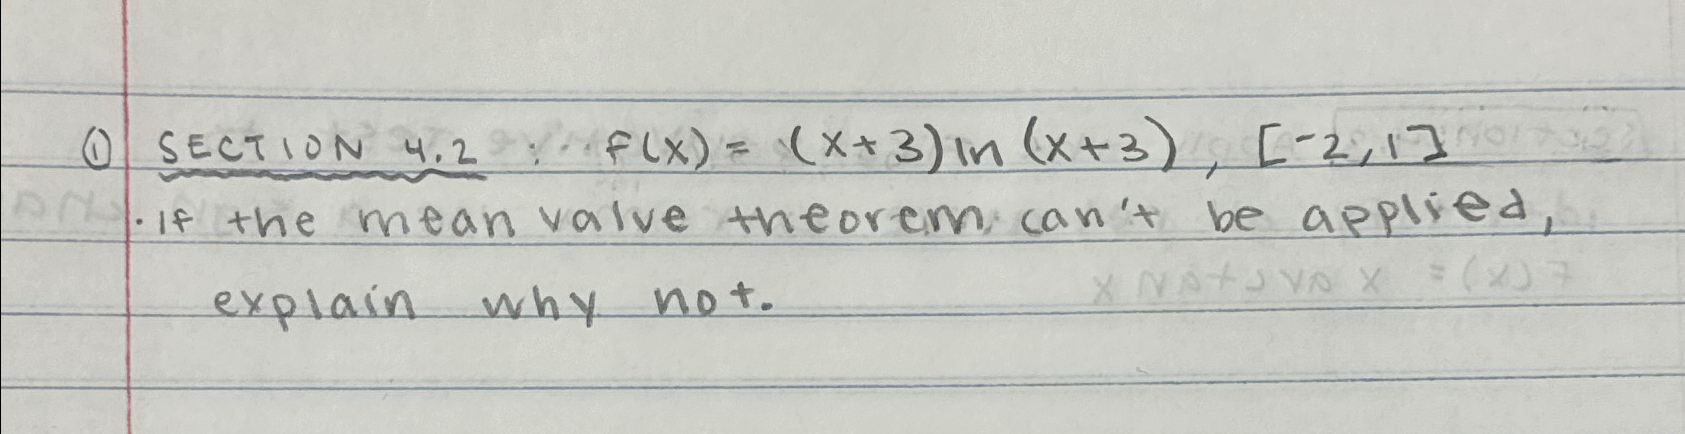 ① SECTION 4.2 : f(x) = (x+3)ln(x+3), [-2,1]
· If the mean value theorem can't be applied,
explain why not.
F(x) = x arctan x